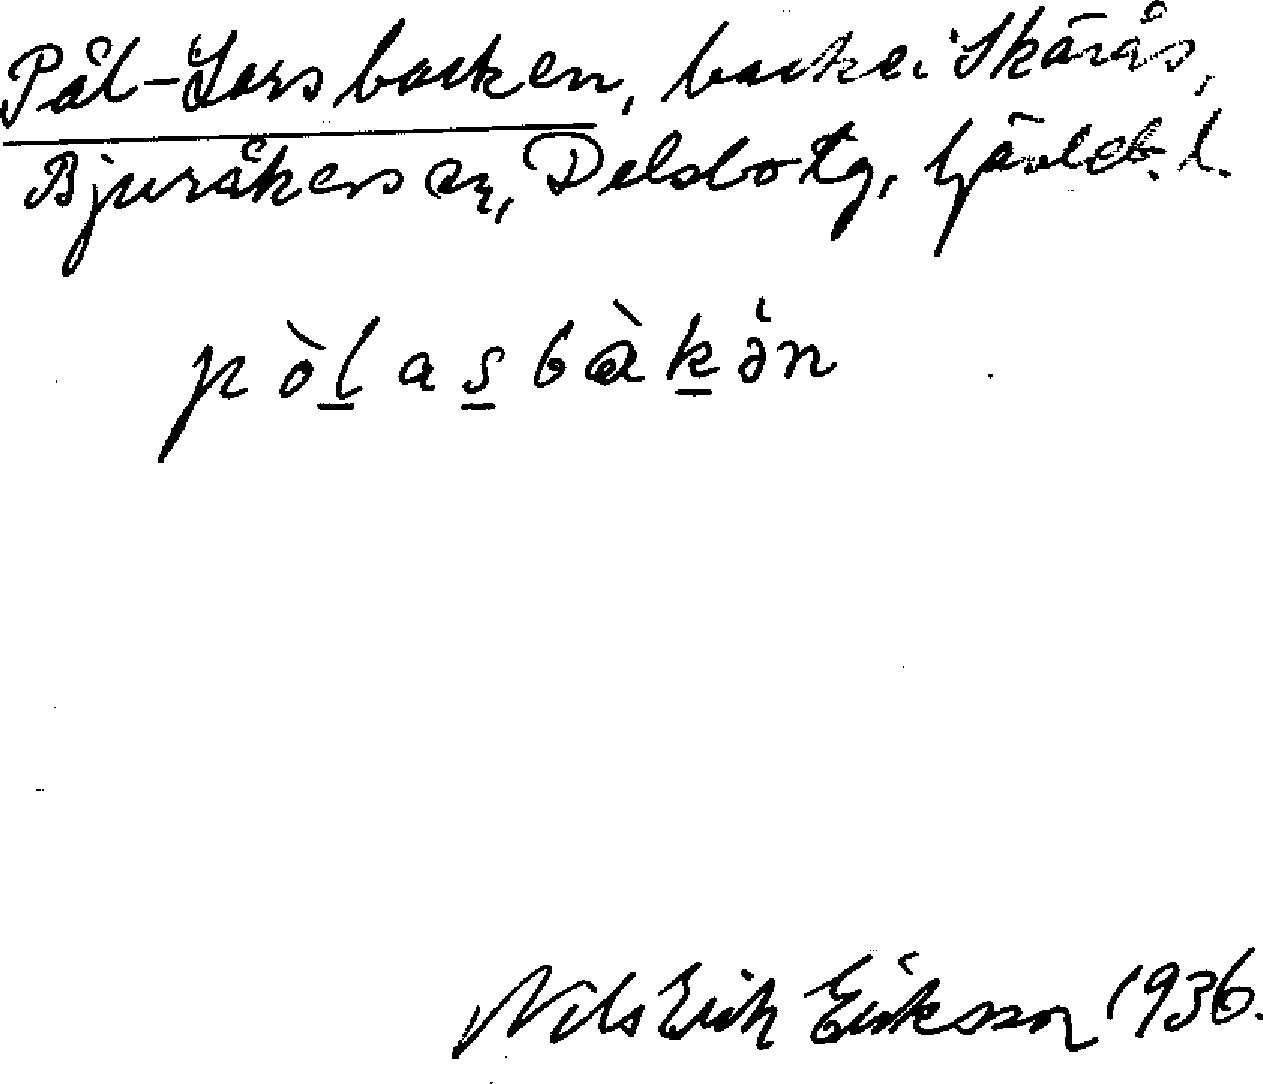 Pål-Larsbacken, backe i Skärås,
Bjuråkers sn, Delsbo tg, Gävleb. l.
pòlasbàkən
Nils Erik Eriksson 1936.